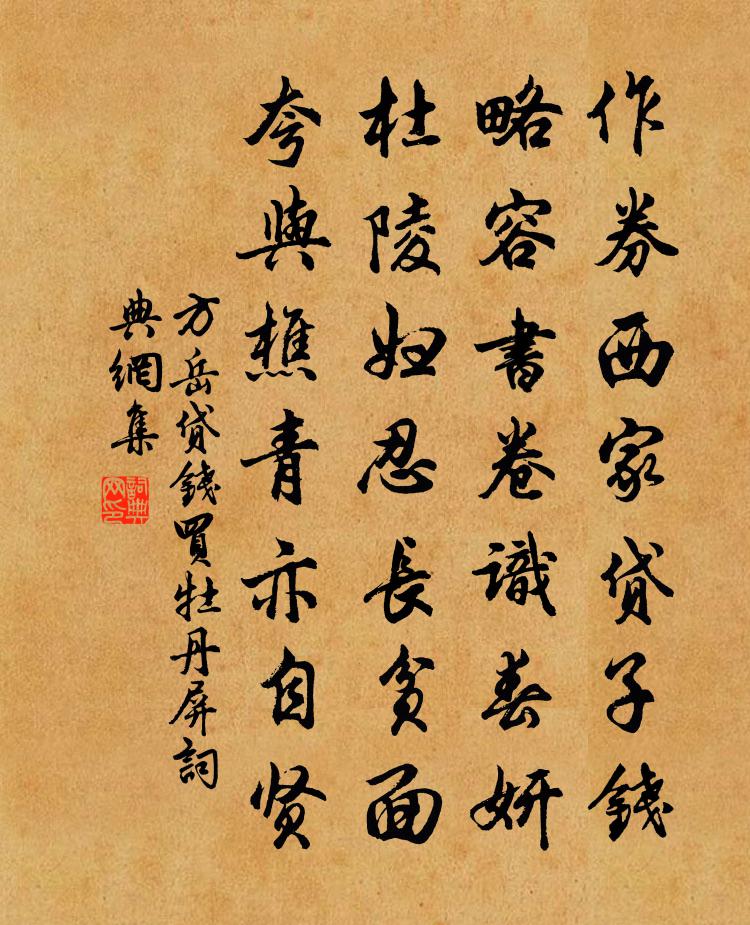 作券西家贷子錢
略容書卷識春妍
杜陵妇忍長貧面
夸與樵青亦自贤
方岳贷錢買牡丹屏詞
典網集
詞典
网印